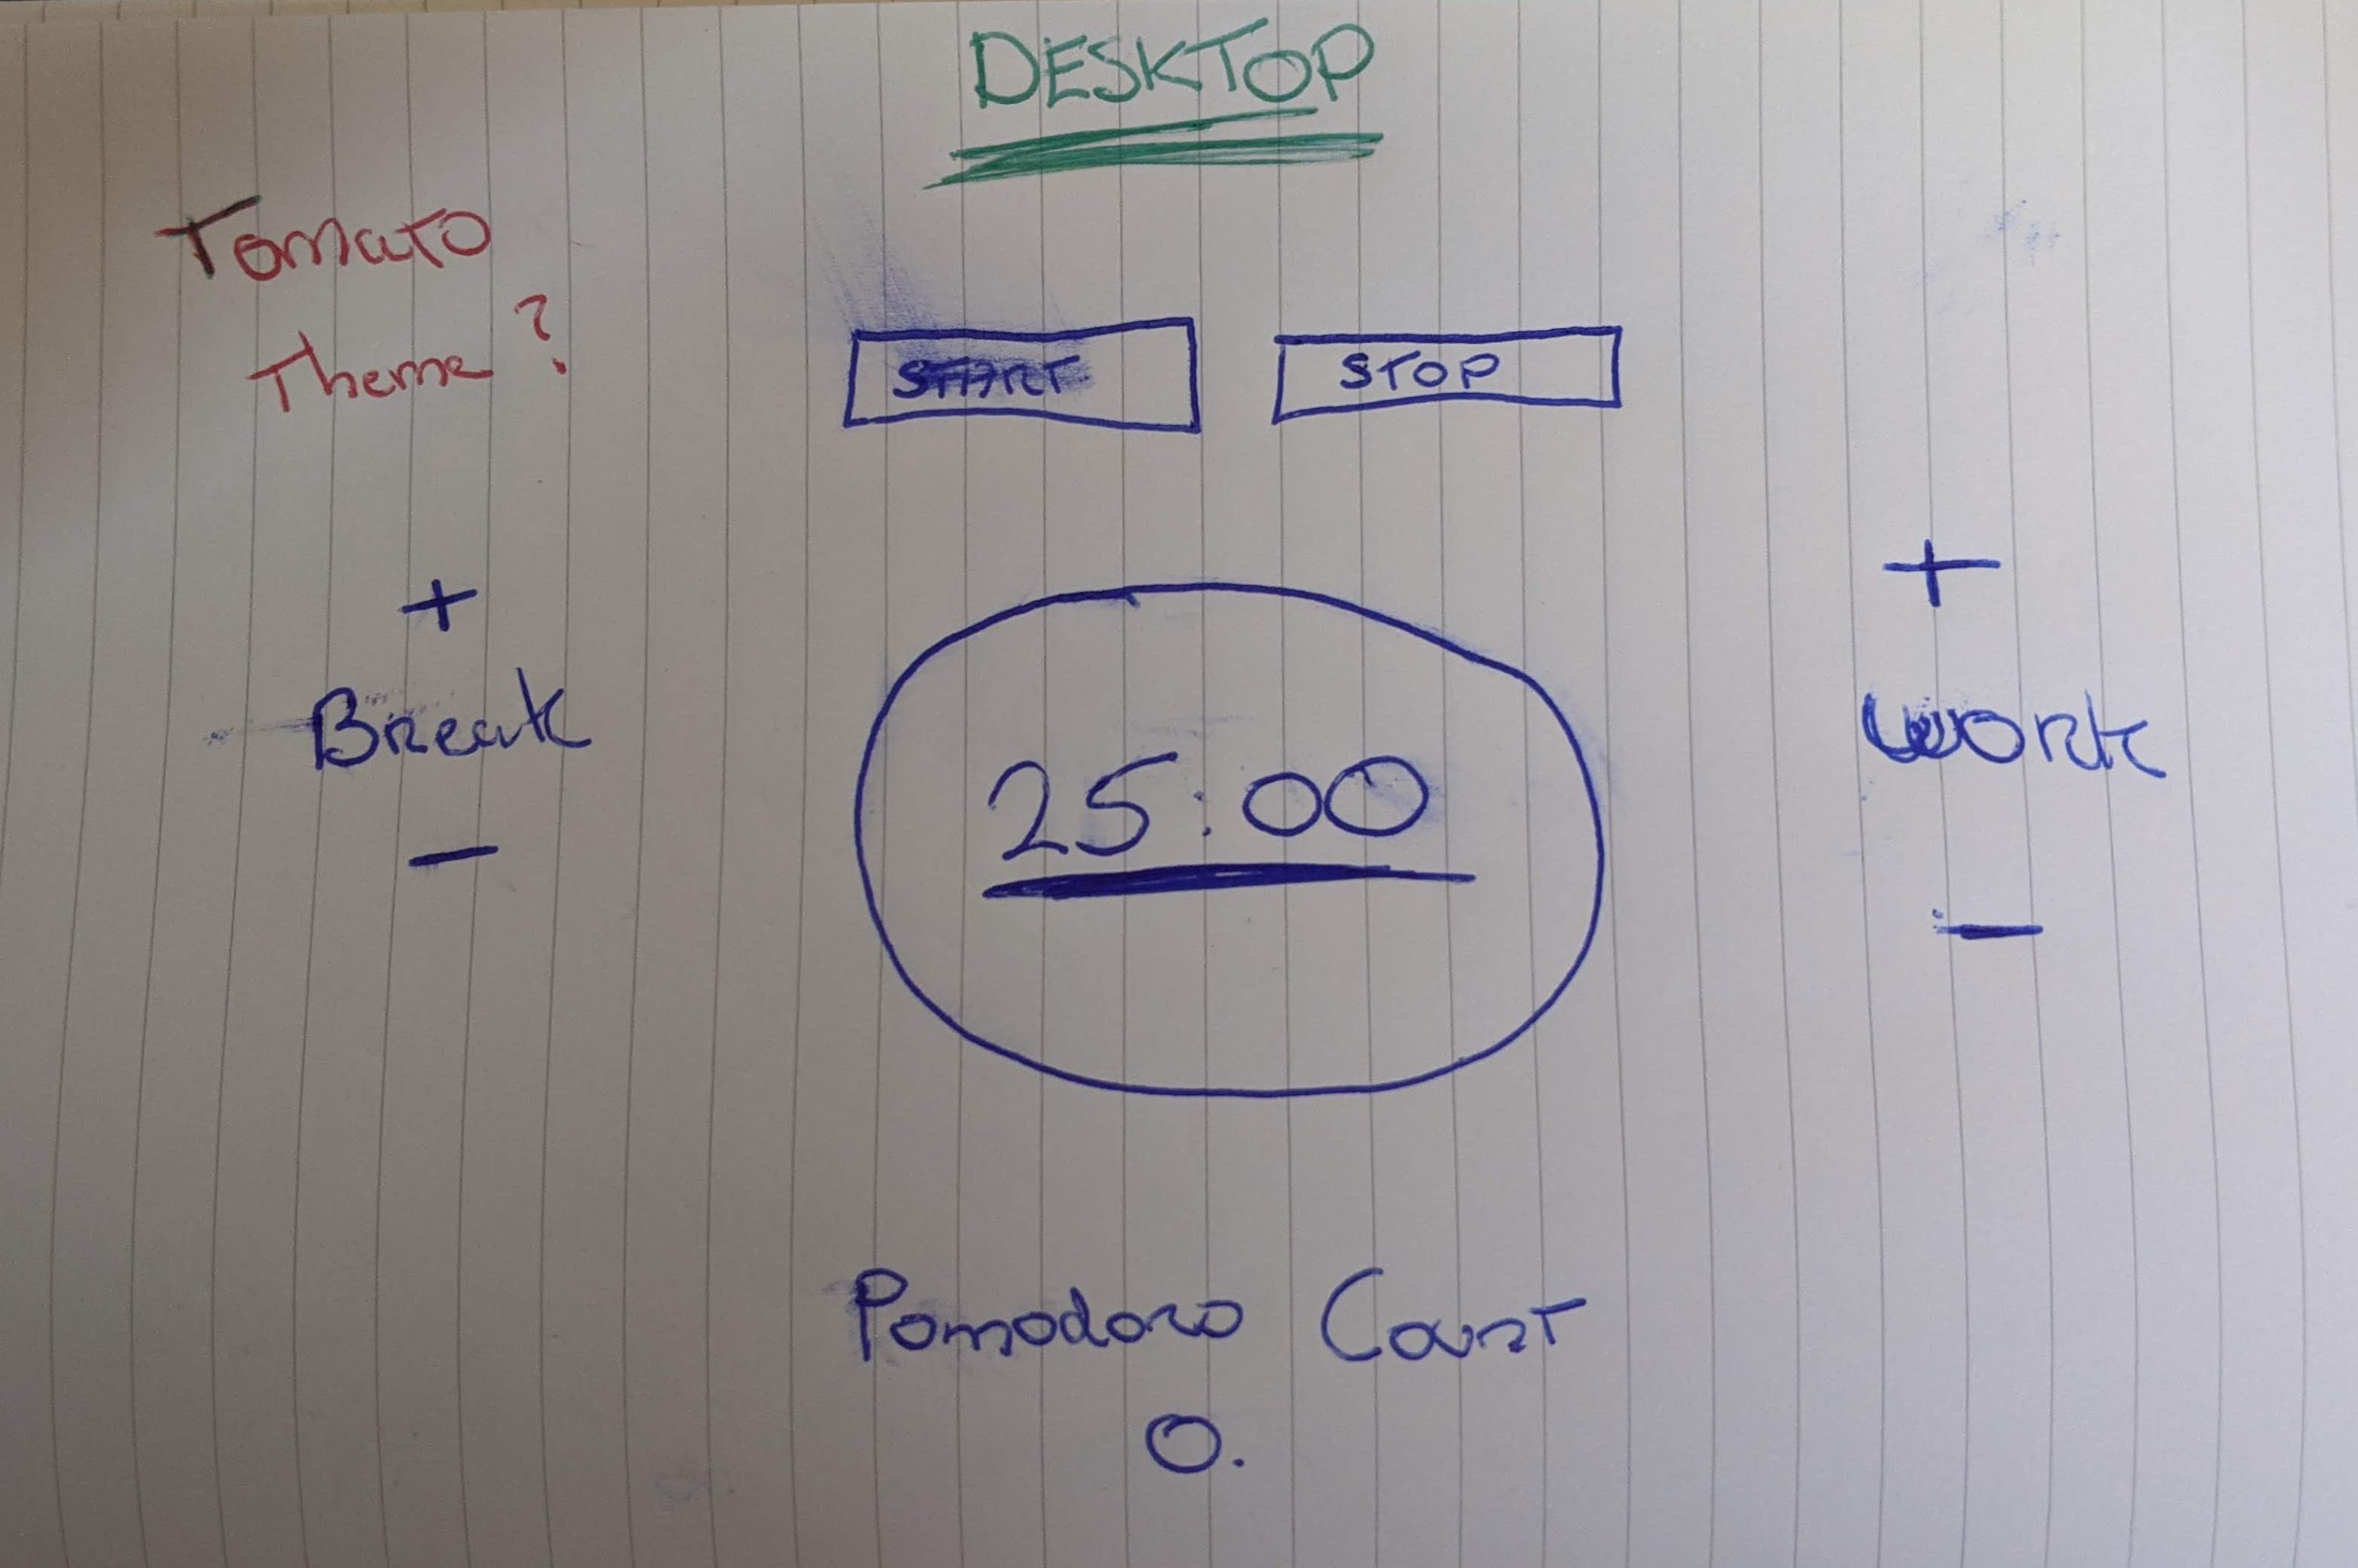 DESKTOP
Tomato
Theme?
START STOP
+ +
Break Work
25:00
- -
Pomodoro Count
0.